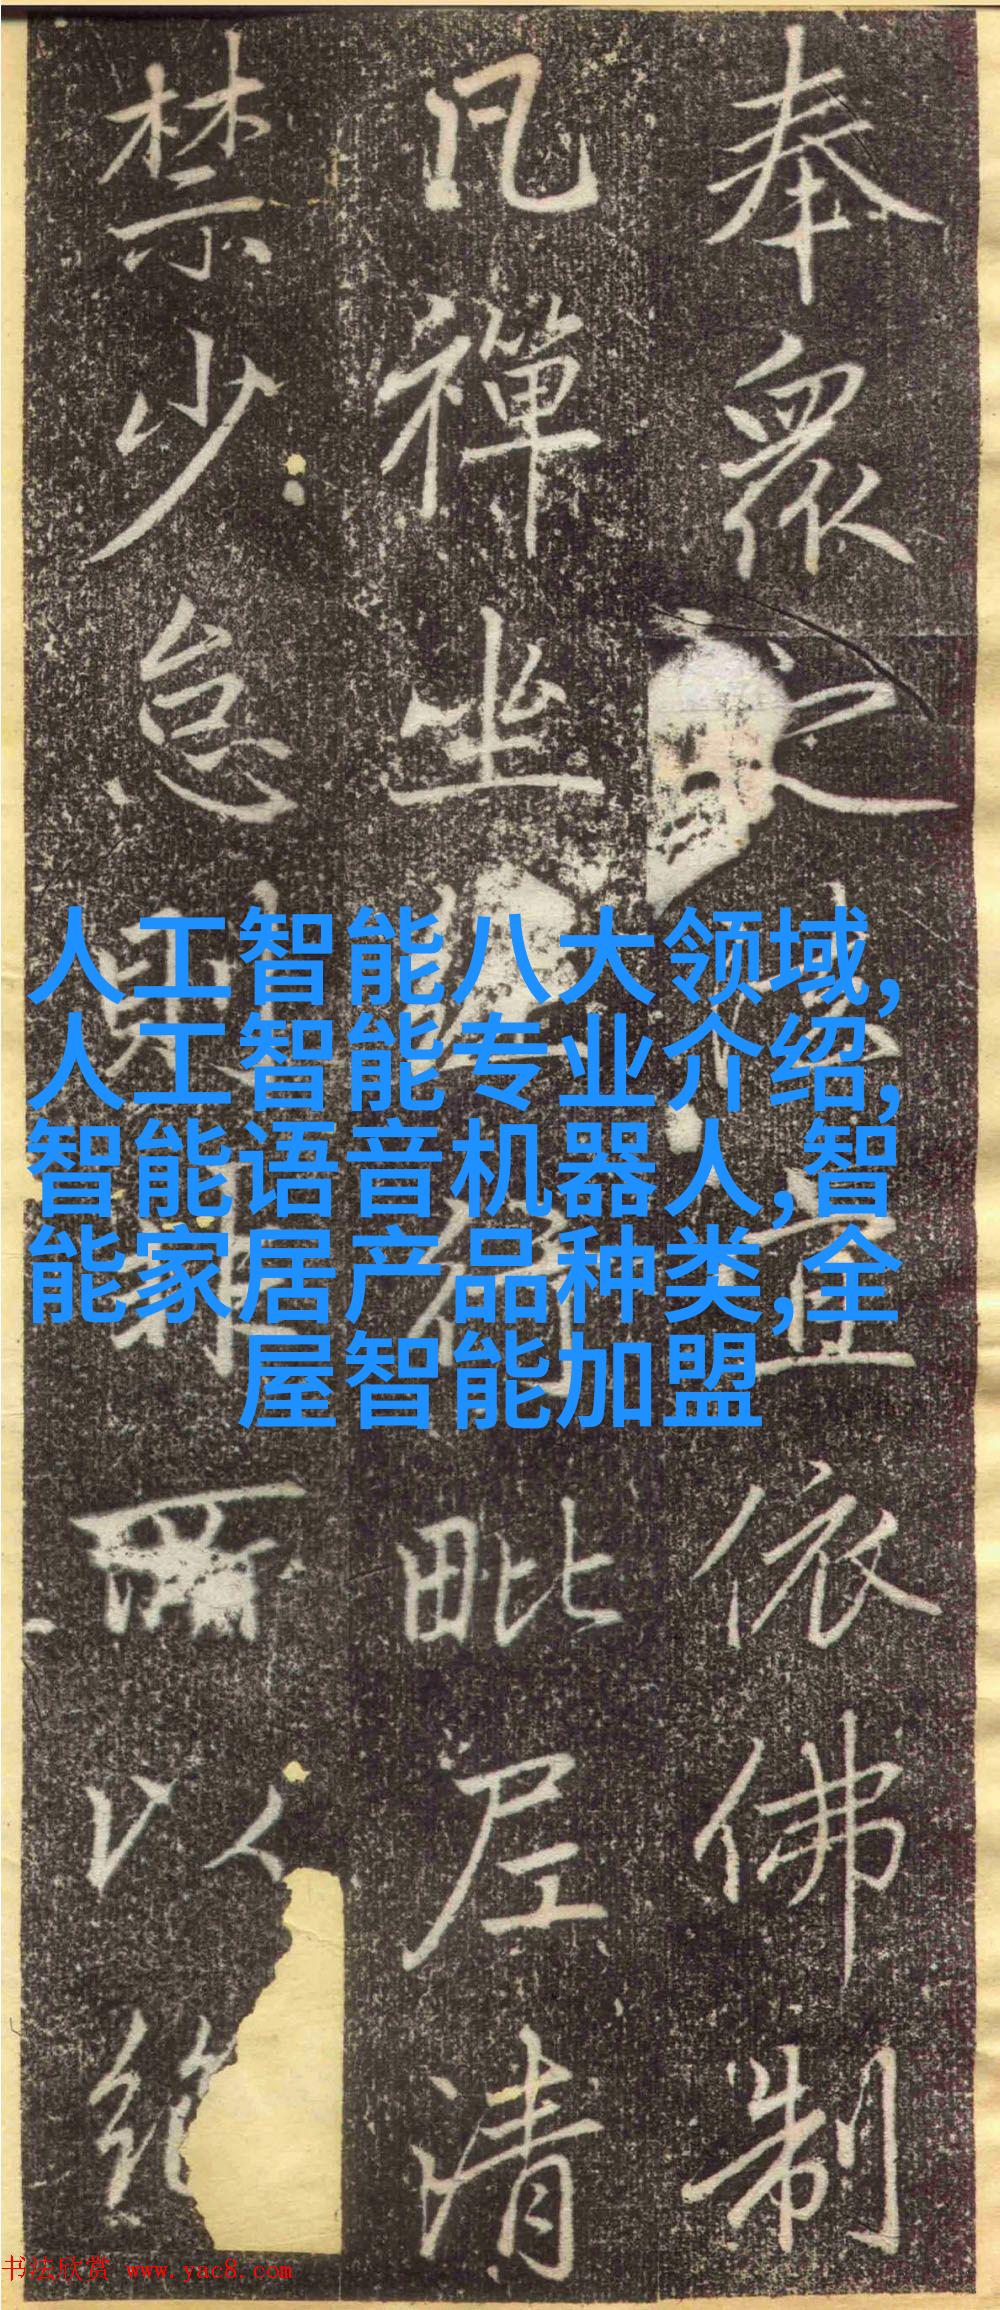 奉眾宜依佛制
凡禪坐毗尼清
禁少怠則以
人工智能八大领域,
人工智能专业介绍,
智能语音机器人,智
能家居产品种类,全
屋智能加盟
书法欣赏 www.yac8.com